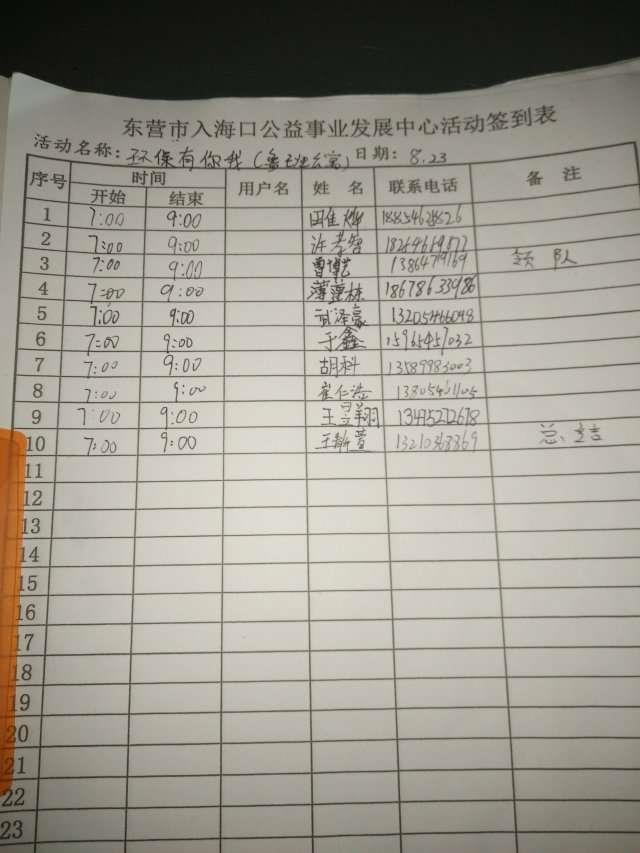 东营市入海口公益事业发展中心活动签到表
活动名称：环保有你我 日期：8.23
序号 时间 用户名 姓名 联系电话 备注
开始 结束
1 7:00 9:00
2 7:00 9:00
3 7:00 9:00 领队
4 7:00 9:00 18678633986
5 7:00 9:00 武泽豪 13205466048
6 7:00 9:00 于鑫 15965457032
7 7:00 9:00 胡科 13589983003
8 7:00 9:00 崔仁浩
9 7:00 9:00 13495272678
10 7:00 9:00 王静萱 13210363869 总结
11
12
13
14
15
16
17
18
19
20
21
22
23